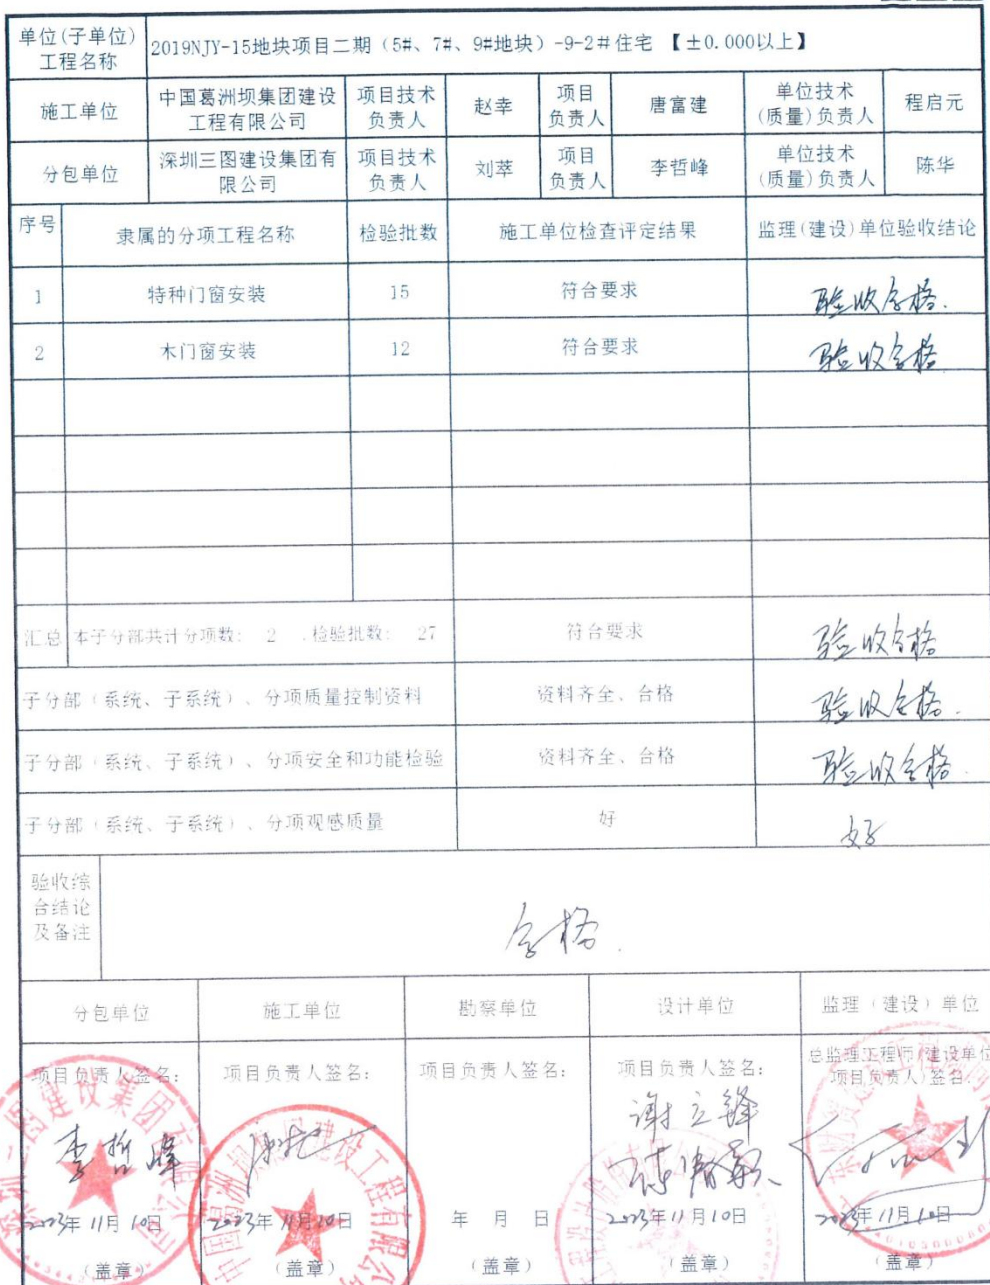 单位(子单位)
工程名称
2019NJY-15地块项目二期（5#、7#、9#地块）-9-2#住宅 【±0.000以上】
施工单位
中国葛洲坝集团建设
工程有限公司
项目技术
负责人
赵幸
项目
负责人
唐富建
单位技术
(质量)负责人
程启元
分包单位
深圳三图建设集团有
限公司
项目技术
负责人
刘萃
项目
负责人
李哲峰
单位技术
(质量)负责人
陈华
序号
隶属的分项工程名称
检验批数
施工单位检查评定结果
监理(建设)单位验收结论
1
特种门窗安装
15
符合要求
验收合格.
2
木门窗安装
12
符合要求
验收合格
汇总
本子分部共计分项数: 2 ,检验批数: 27
符合要求
验收合格
子分部（系统、子系统）、分项质量控制资料
资料齐全、合格
验收合格.
子分部（系统、子系统）、分项安全和功能检验
资料齐全、合格
验收合格.
子分部（系统、子系统）、分项观感质量
好
好
验收综
合结论
及备注
合格.
分包单位
施工单位
勘察单位
设计单位
监理（建设）单位
项目负责人签名:
李哲峰
2023年11月10日
（盖章）
项目负责人签名:
2023年11月10日
（盖章）
项目负责人签名:
年 月 日
（盖章）
项目负责人签名:
谢立锋
2023年11月10日
（盖章）
总监理工程师(建设单位
项目负责人)签名:
2023年11月10日
（盖章）